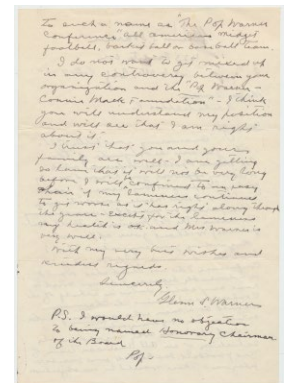 to such a name as "The Pop Warner
Conference" "all american midget
football, basket ball or baseball team.
I do not want to get mixed up
in any controversy between your
organization and the "Pop Warner -
Connie Mack Foundation" - I think
you will understand my position
and will see that I am right
about it"
I trust that you and your
family are well - I am getting
so lame that it will not be very long
before I will be confined to my easy
chair if my lameness continues
to get worse as it has right along
the - Except for the lameness
my health is ok and Mrs Warner is
very well.
With my very best wishes and
kindest regards.
Sincerely
Glenn S. Warner
P.S. I would have no objection
to being named Honorary Chairman
of its Board
Pop -